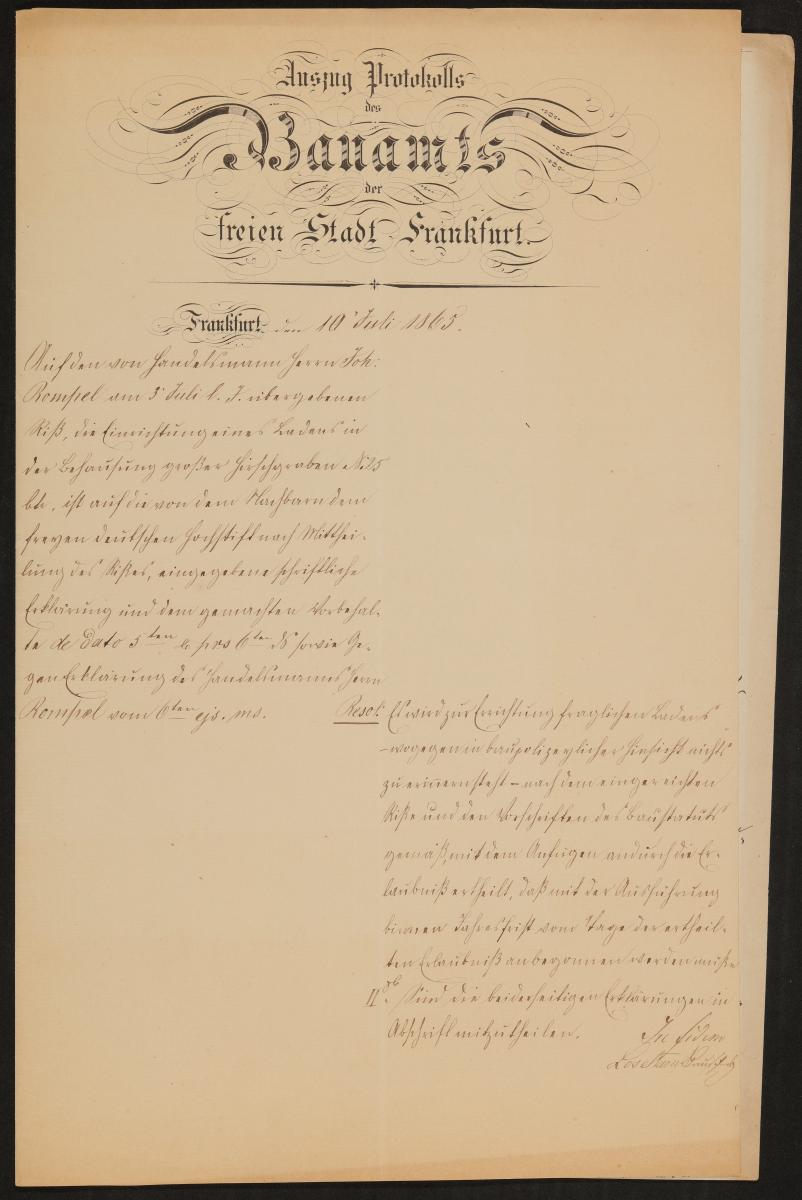 Auszug Protokolls
des
Bauamts
der
freien Stadt Frankfurt.
Frankfurt, den 10' Juli 1865.
Auf den von Handelsmann Herrn Joh:
Rompel am 3' Juli l. J. übergebenen
Riß, die Einrichtung eines Ladens in
der Behausung großer Hirschgraben No 25
btr, ist auf die von dem Nachbarn dem
freyen deutschen Hochstift nach Mitthei-
lung des Rißes, eingegebene schriftliche
Erklärung und dem gemachten Vorbehal-
te de dato 5ten & prs 6ten ds sowie Ge-
gen Erklärung des Handelsmanns Herrn
Rompel vom 6ten ejs. ms.
Resol: Es wird zur Errichtung fraglichen Ladens
- wogegen in baupolizeylicher Hinsicht nichts
zu erinnern steht - nach dem eingereichten
Riße und den Vorschriften des Baustatuts
gemäß, mit dem Anfügen andurch die Er-
laubniß ertheilt, daß mit der Ausführung
binnen Jahresfrist vom Tage der ertheil-
ten Erlaubniß an begonnen werden müße
II Sind die beiderseitigen Erklärungen in
Abschrift mitzutheilen.
In fidem